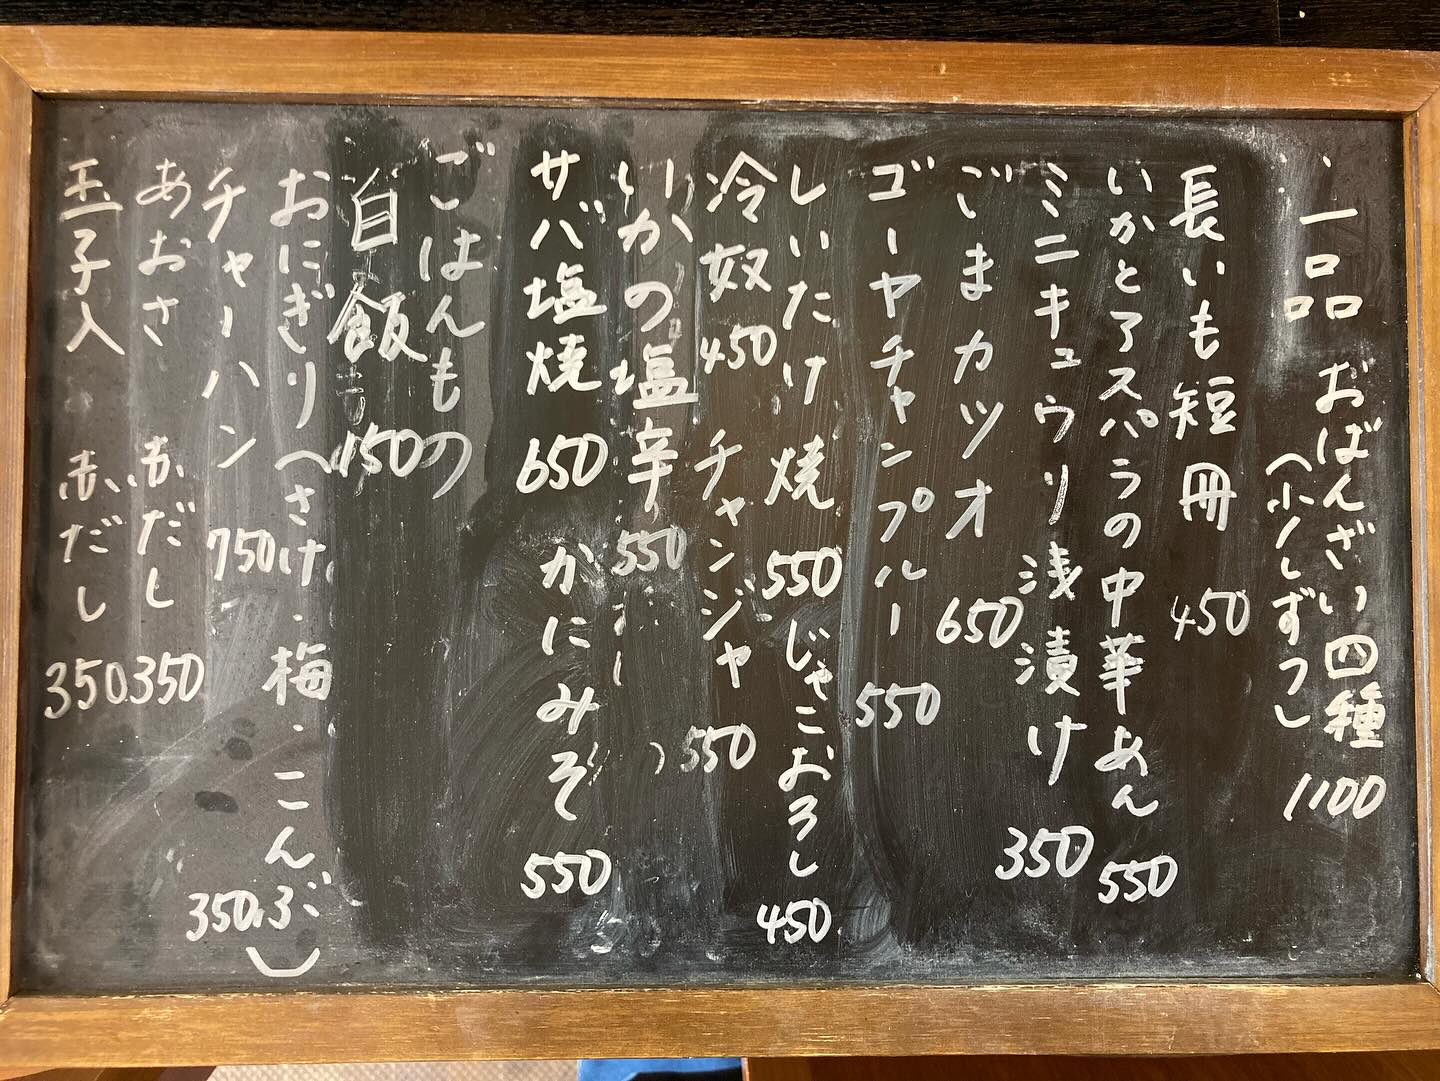 一品 おばんざい四種 1100
(少しずつ)
長いも短冊 450
いかとアスパラの中華あん 550
ミニキュウリ浅漬け 350
ごまカツオ 650
ゴーヤチャンプルー 550
しいたけ焼 550 じゃこおろし 450
冷奴 450 チャンジャ 550
いかの塩辛 550
サバ塩焼 650 かにみそ 550
ごはんもの
白飯 150
おにぎり(さけ・梅・こんぶ) 350
チャーハン 750
あおさ 赤だし 350
玉子入 赤だし 350